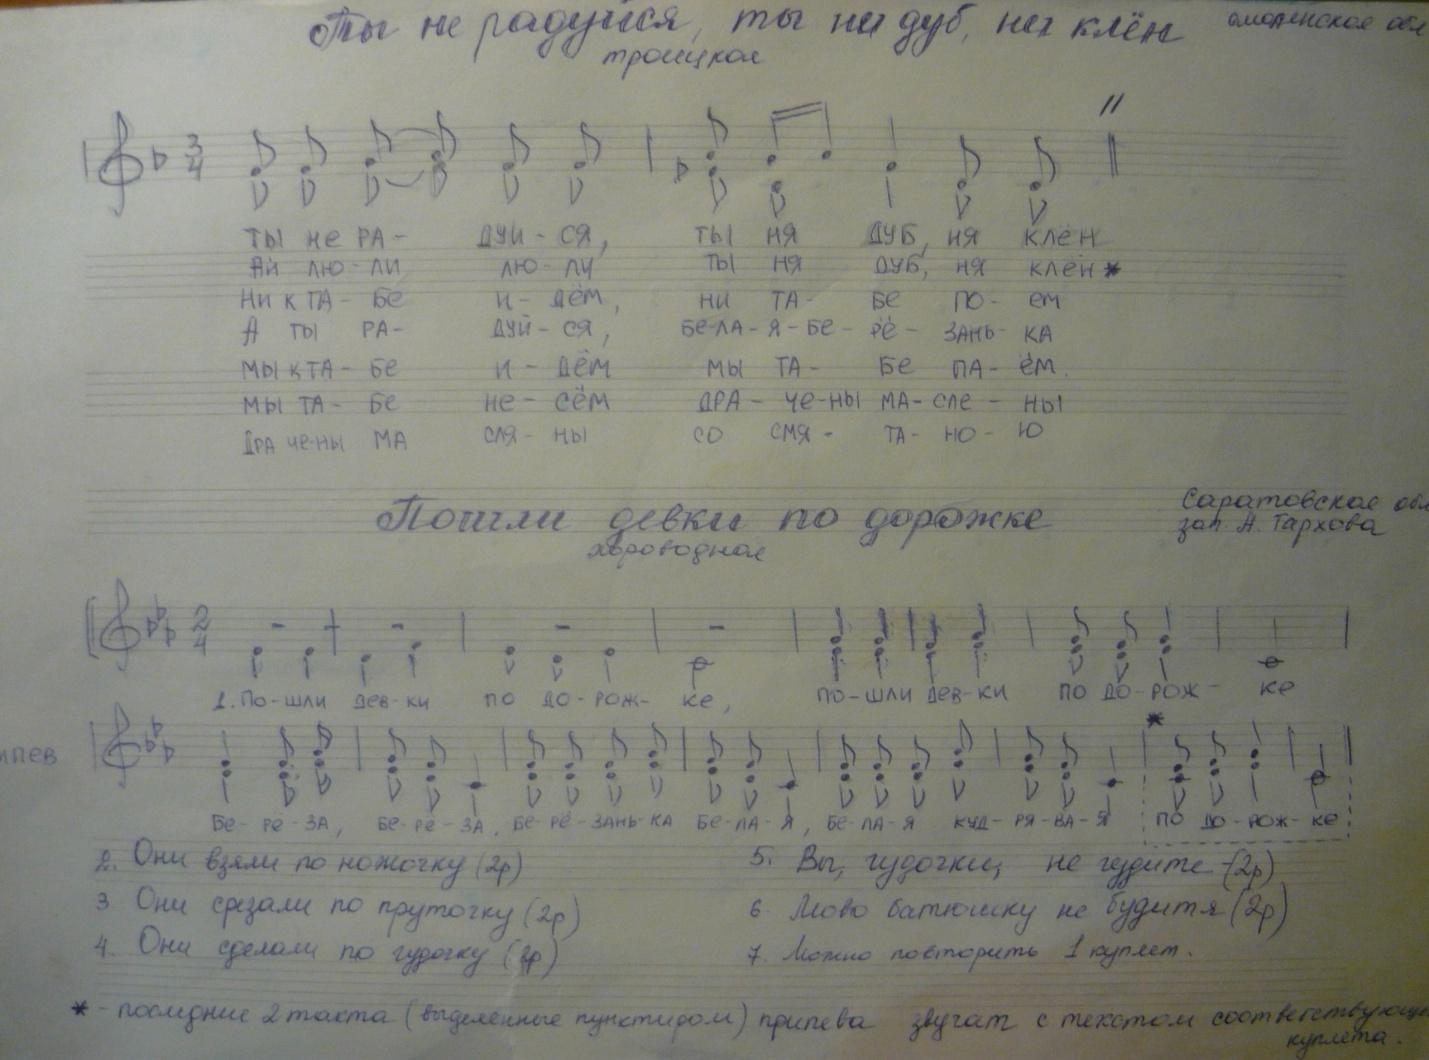 Ты не радуйся, ты ни дуб, ни клён
смоленская обл
троицкая
3/4
ТЫ НЕ РА- ДУЙ-СЯ, ТЫ НЯ ДУБ, НЯ КЛЁН
АЙ ЛЮ-ЛИ ЛЮ-ЛИ ТЫ НЯ ДУБ, НЯ КЛЁН*
НИ К ТА-БЕ И-ДЁМ, НИ ТА-БЕ ПО-ЕМ
А ТЫ РА-ДУЙ-СЯ, БЕ-ЛА-Я-БЕ-РЁ-ЗАНЬ-КА
МЫ К ТА-БЕ И-ДЁМ МЫ ТА-БЕ ПА-ЁМ.
МЫ ТА-БЕ НЕ-СЁМ ДРА-ЧЕ-НЫ МА-СЛЕ-НЫ
ДРА ЧЕ-НЫ МА СЛЯ-НЫ СО СМЯ-ТА-НО-Ю
Пошли девки по дорожке
Саратовская обл
зап. А. Тархова
хороводная
2/4
1. ПО-ШЛИ ДЕВ-КИ ПО ДО-РОЖ-КЕ, ПО-ШЛИ ДЕВ-КИ ПО ДО-РОЖ-КЕ
ипев
*
БЕ-РЁ-ЗА, БЕ-РЁ-ЗА, БЕ-РЁ-ЗАНЬ-КА БЕ-ЛА-Я, БЕ-ЛА-Я КУД-РЯ-ВА-Я ПО ДО-РОЖ-КЕ
2. Они взяли по ножочку (2р)
3. Они срезали по пруточку (2р)
4. Они сделали по гудочку (2р)
5. Вы, гудочки, не гудите -(2р)
6. Мово батюшку не будитя (2р)
7. Можно повторить 1 куплет.
* - последние 2 такта (выделенные пунктиром) припева звучат с текстом соответствующе
куплета.